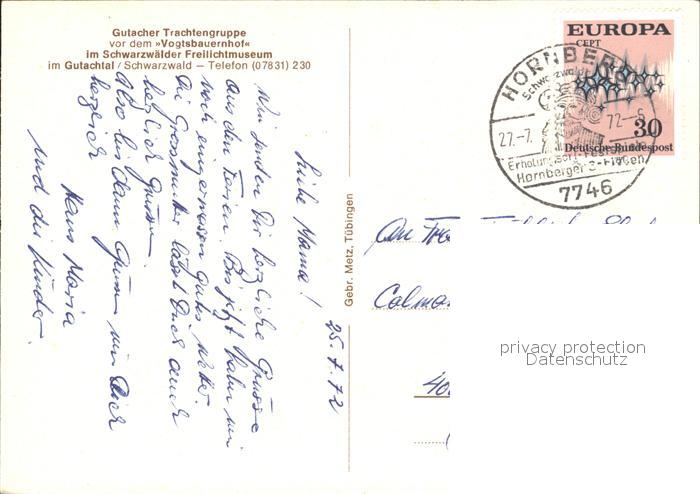 Gutacher Trachtengruppe
vor dem »Vogtsbauernhof«
im Schwarzwälder Freilichtmuseum
im Gutachtal / Schwarzwald — Telefon (07831) 230
25.7.72
Liebe Mama!
Wir senden Dir herzliche Grüsse
aus den Ferien. Bis jetzt haben wir
noch einigermassen gutes Wetter.
Die Grossmutter lässt Dich auch
herzlich grüssen.
Also bis dann grüssen wir Dich
herzlich
Hans Maria
und die Kinder.
Gebr. Metz, Tübingen
EUROPA
CEPT
30
Deutsche Bundespost
HORNBERG
Schwarzwald
27.-7. 72-6
Erholungsort
Hornberger
7746
An
Colma
40
privacy protection
Datenschutz